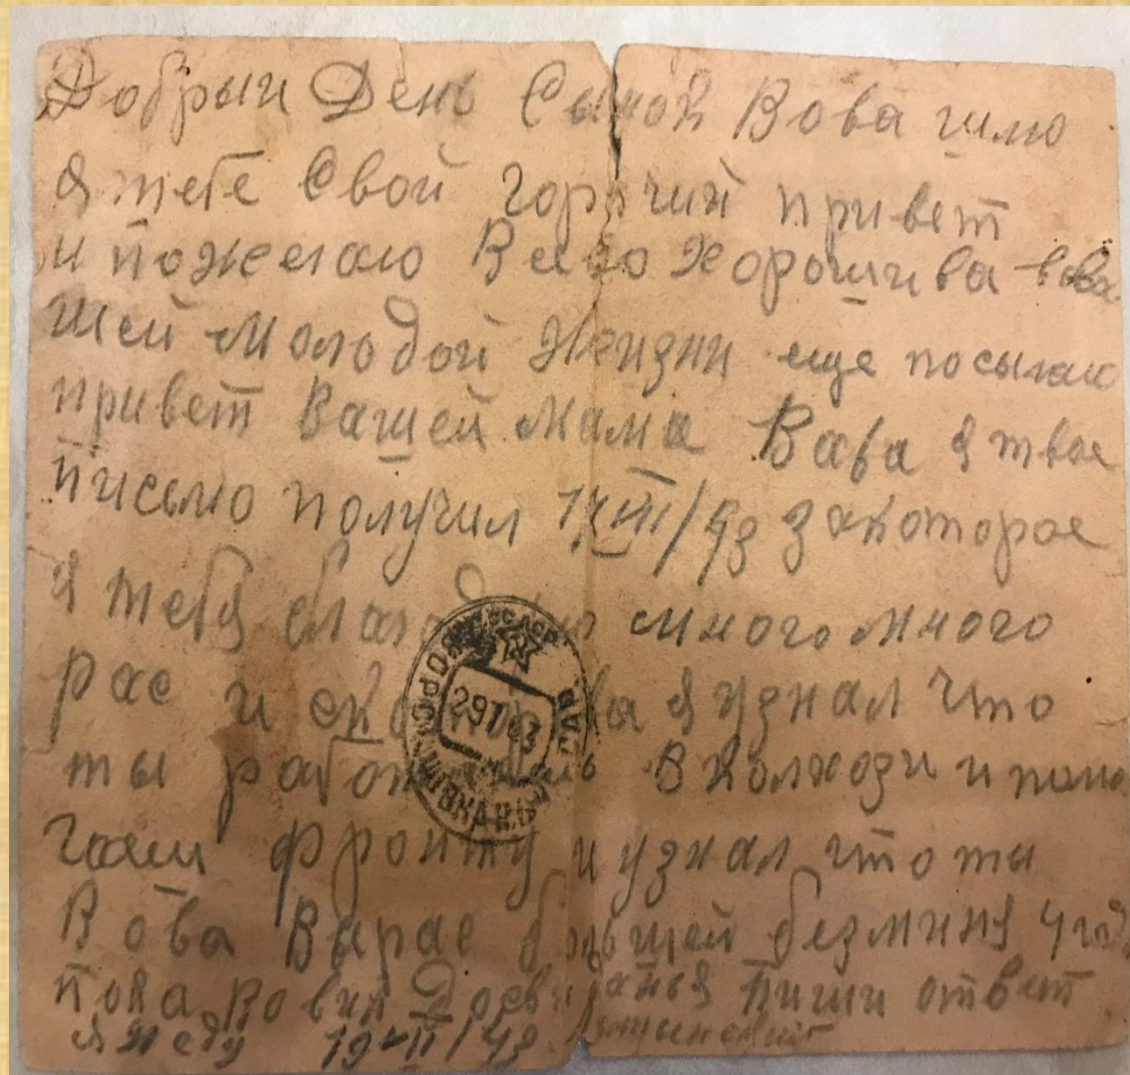 Добрый День Сынок Вова шлю
я тебе Свой горячий привет
и пожелаю Всего Хорошива вва
шей молодой Жизни еще посылаю
привет Вашей Мама Вова я твое
письмо получил /43 закоторое
я тебя много много
рас и я узнал что
ты работаешь В Колхози и помо
гаеш фронту и узнал что ты
Вова Варас большей безминя 4
пока Досвиданья Пиши ответ
я жду 19 /43
29 43